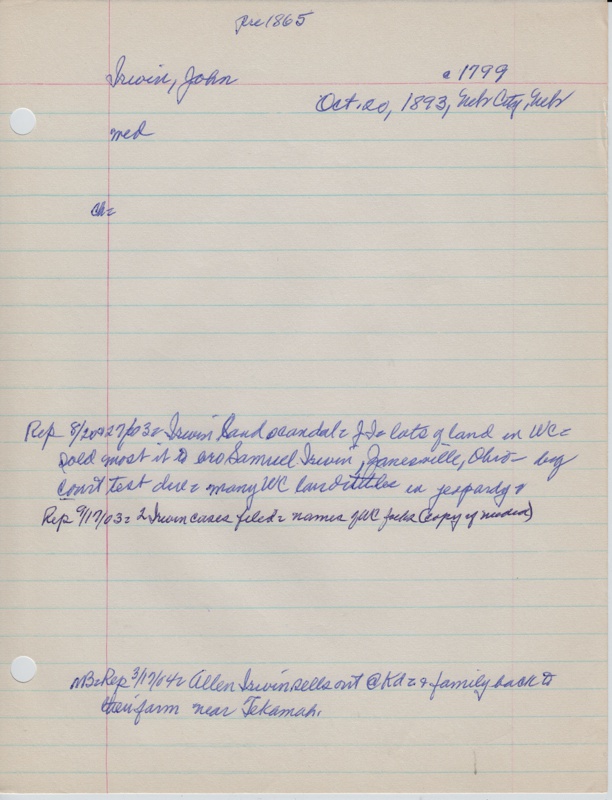 pre 1865
Irwin, John c 1799
Oct. 20, 1893, Neb City, Nebr
med
ch=
Rep 8/20+27/03= Irwin Land scandal= J I= lots of land in WC=
sold most it to bro Samuel Irwin, Janesville, Ohio- big
court test due= many WC land titles in jeopardy +
Rep 9/17/03= 2 Irwin cases filed= names of WC folks (copy if needed)
NB= Rep 3/17/04= Allen Irwin sells out @ Kd= + family back to
their farm near Tekamah.